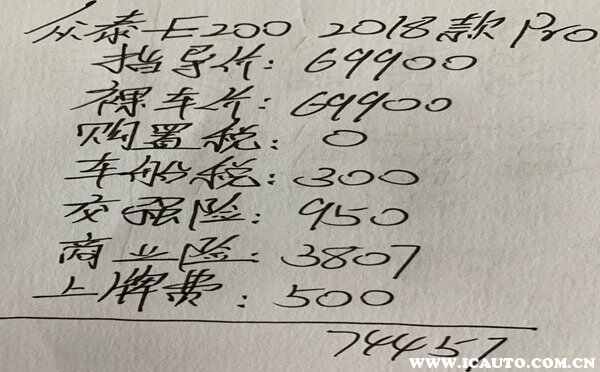 众泰E200 2018款 Pro
指导价: 69900
裸车价: 69900
购置税: 0
车船税: 300
交强险: 950
商业险: 3807
上牌费: 500
74457
爱车网
WWW.ICAUTO.COM.CN